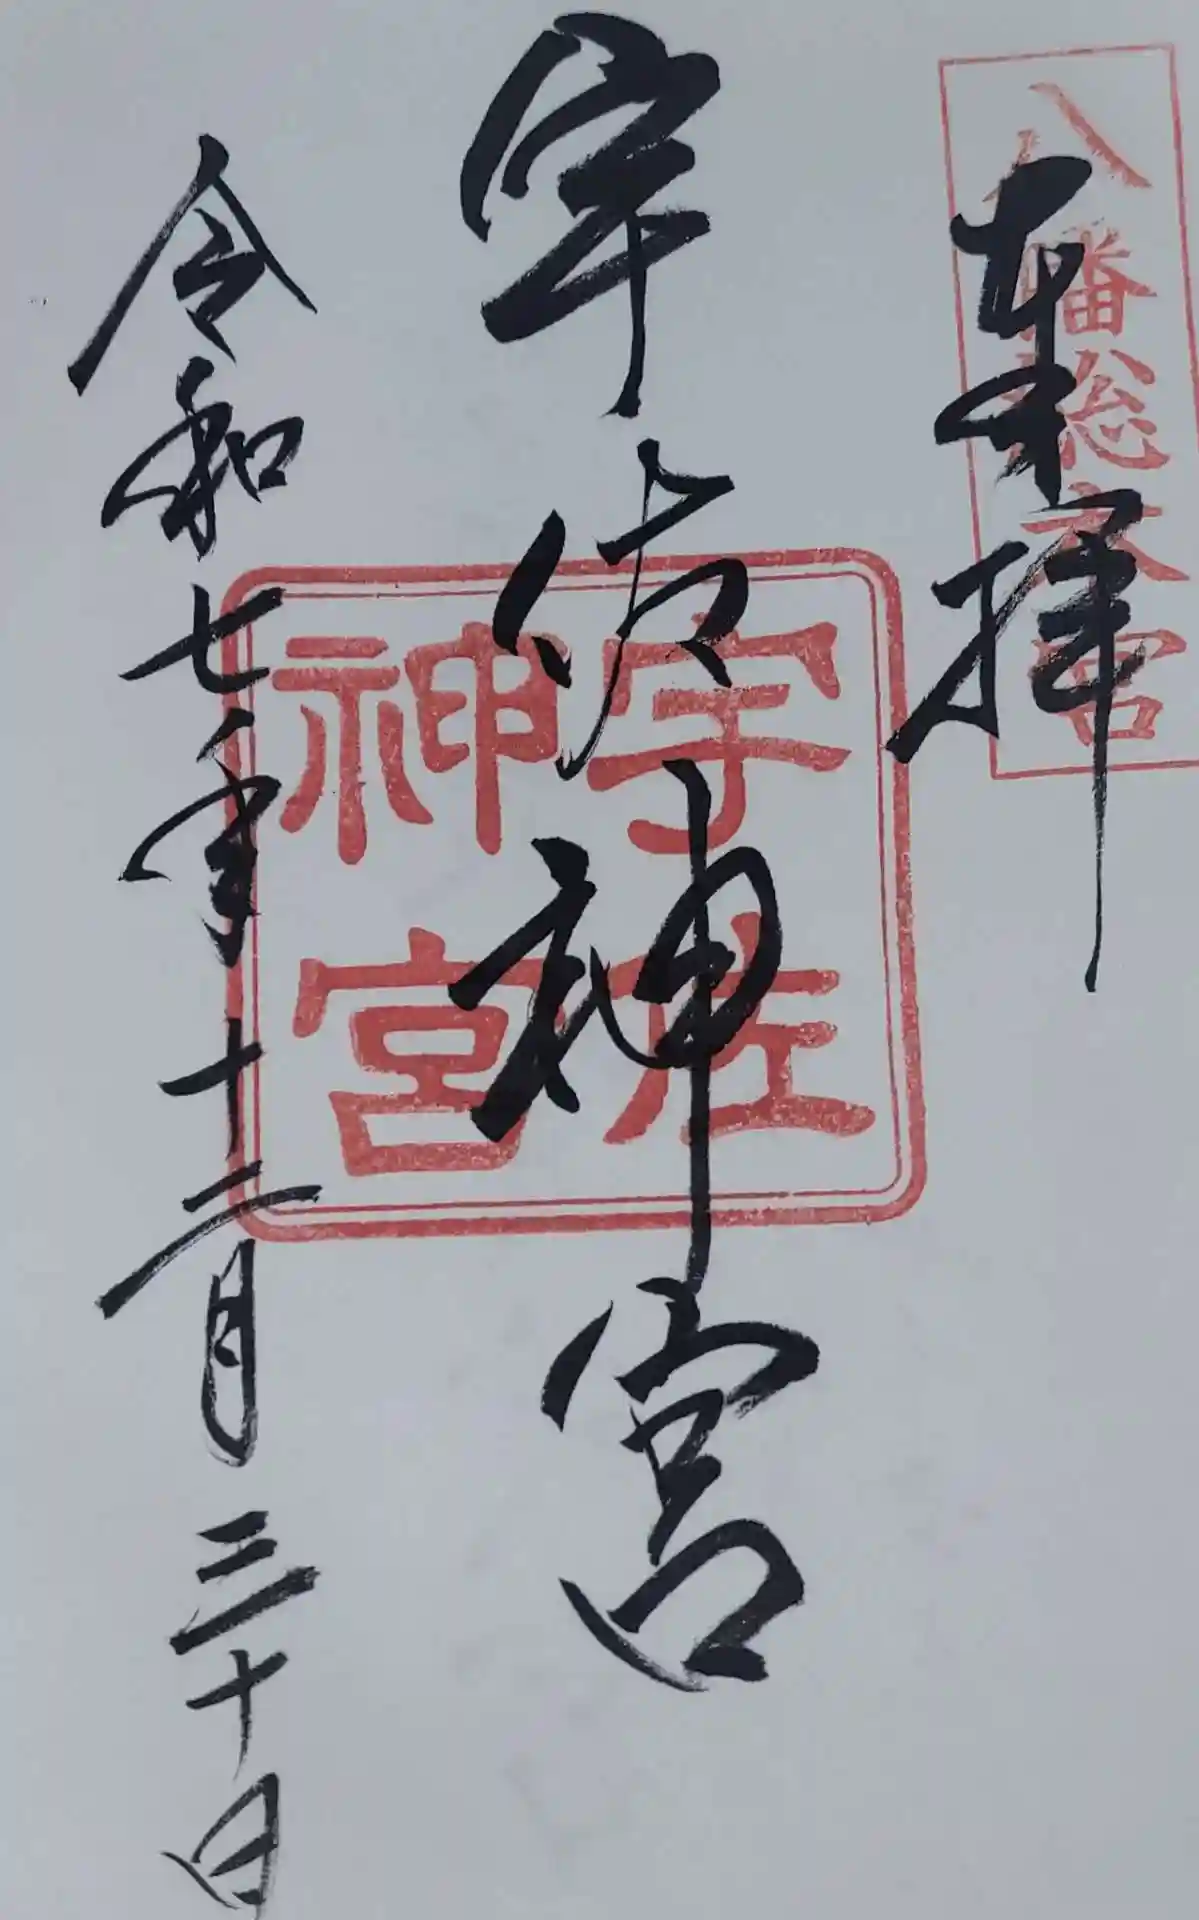 八幡総本宮
奉拝
宇佐神宮
宇佐
神宮
令和七年十二月三十日